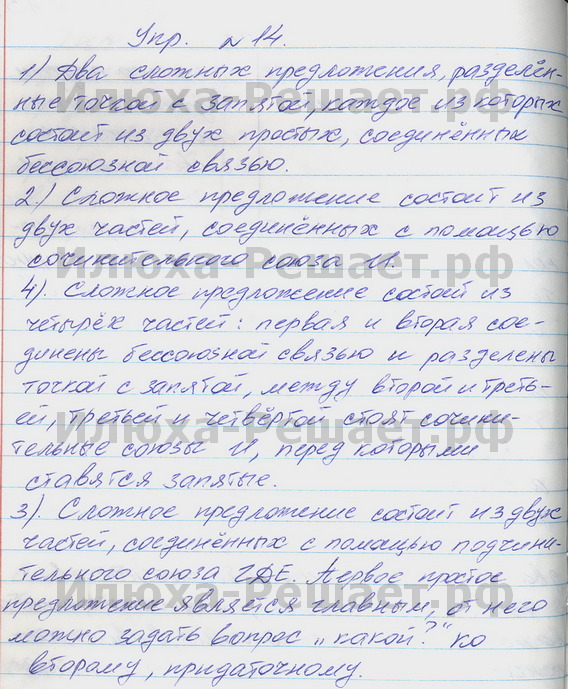 Упр. №14.
1) Два сложных предложения, разделён-
ные точкой с запятой, каждое из которых
состоит из двух простых, соединённых
бессоюзной связью.
Илюха-Решает.рф
2) Сложное предложение состоит из
двух частей, соединённых с помощью
сочинительного союза И.
Илюха-Решает.рф
4). Сложное предложение состоит из
четырёх частей: первая и вторая сое-
динены бессоюзной связью и разделены
точкой с запятой, между второй и треть-
ей, третьей и четвёртой стоят сочини-
Илюха-Решает.рф
тельные союзы И, перед которыми
ставятся запятые.
3). Сложное предложение состоит из двух
частей, соединённых с помощью подчини-
тельного союза ГДЕ. Первое простое
предложение является главным, от него
Илюха-Решает.рф
можно задать вопрос „какой?“ ко
второму, придаточному.